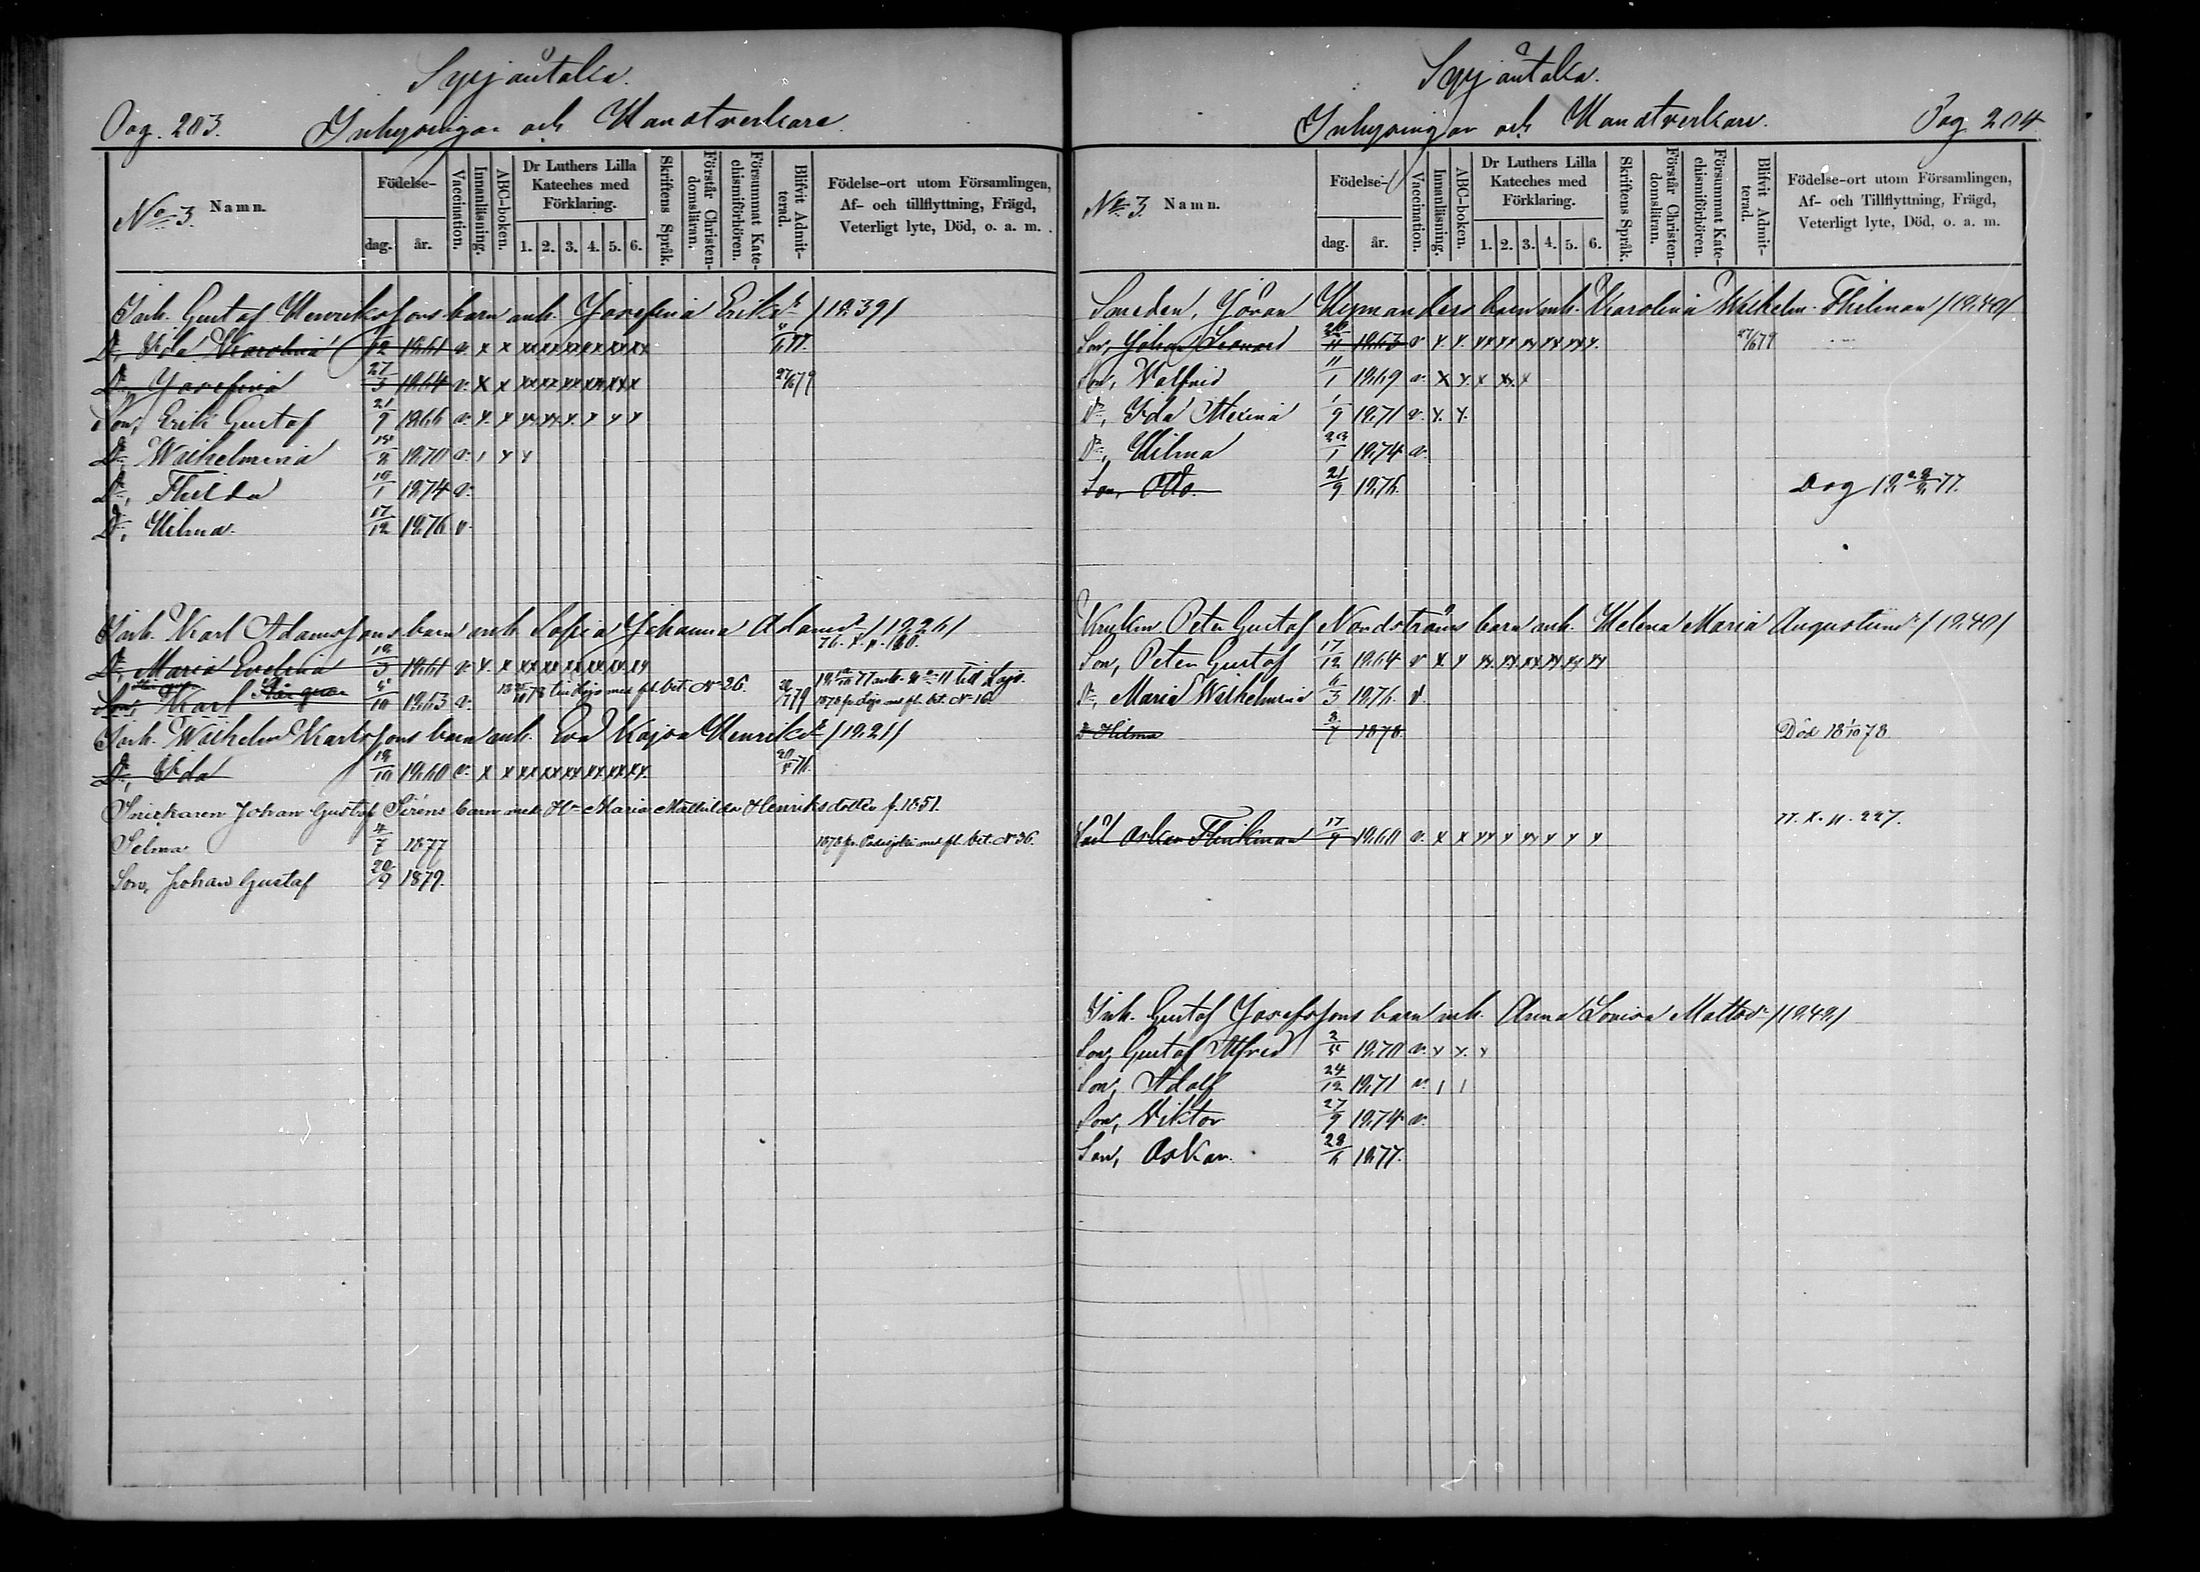 Syrjäntaka.
Pag. 203. Inhysingar och Handtverkare.
No 3.
Namn.
Födelse-
dag. år.
Vaccination.
Innanläsning.
ABC-boken.
Dr Luthers Lilla Kateches med Förklaring.
1. 2. 3. 4. 5. 6.
Skriftens Språk.
Förstår Christendomsläran.
Försummat Katechismiförhören.
Blifvit Admitterad.
Födelse-ort utom Församlingen, Af- och tillflyttning, Frägd, Veterligt lyte, Död, o. a. m.
Inh. Gustaf Henrikssons barn m.h. Josefina Eriksdr /1839/
Dr, Ida Karolina 1861 v. x x xx xx xx xx xx xx
Dr, Josefina 27/3 1864 v. x x xx xx xx xx xx x 27/6 79
Son, Erik Gustaf 21/9 1866 v. x. x xx. xx. x. x x x
Dr, Wilhelmina 1870 v. x x
Dr, Thilda 19/1 1874 v.
Dr, Hilma. 17/12 1876 v.
Inh. Karl Adamssons barn m.h. Sofia Johanna Adamsdr /1826/
76. X. n. 160.
Dr, Maria Evelina 18/3 1861 v. x. x xx xx xx xx xx xx
Son, Karl 5/10 1863 v. till Lojo med fl. bet. No 26. 1878 fr. Lojo m. fl. bet. No 16.
Inh. Wilhelm Karlssons barn m.h. Eva Kajsa Henriksdr /1821/
Dr, Ida 18/10 1860 v. x x xx xx xx xx xx xx.
Snickaren Johan Gustaf Siréns barn med Hu Maria Mathilda Henriksdotter f. 1851.
Selma 4/7 1877 1878 fr. Padasjoki med fl. bet. No 36.
Son, Johan Gustaf 20/9 1879.
Syrjäntaka.
Inhysingar och Handtverkare. Pag 204
No 3.
Namn.
Födelse-
dag. år.
Vaccination.
Innanläsning.
ABC-boken.
Dr Luthers Lilla Kateches med Förklaring.
1. 2. 3. 4. 5. 6.
Skriftens Språk.
Förstår Christendomsläran.
Försummat Katechismiförhören.
Blifvit Admitterad.
Födelse-ort utom Församlingen, Af- och Tillflyttning, Frägd, Veterligt lyte, Död, o. a. m.
Smeden, Göran Hymanders barn m.h. Karolina Wilhelm. Thilman /1840/
Son, Johan Leonard 1863 v x. x. xx xx xx xx xx x. 27/6 79
Son, Valfrid 11/1 1869 v. x x. x xx. x
Dr, Ida Alexina 1/9 1871 v. x x.
Dr, Hilma 23/1 1874 v.
Son, Otto. 21/9 1876. Dog 18 77.
Peter Gustaf Nordströms barn m.h. Helena Maria Augustindr /1840/
Son, Peter Gustaf 17/12 1864 v x x xx. xx. xx xx xx xx
Dr, Maria Wilhelmina 1876. v.
Dr Hilma 1878. Död 18 1/10 78.
77. X. n. 227.
Karl Oskar Flinkman 17/9 1860 v. x x xx x xx x x x
Inh. Gustaf Josefssons barn m.h. Anna Lovisa Mattsdr /1842/
Son, Gustaf Alfred 1870 v. x x. x
Son, Adolf 24/12 1871 v.
Son, Viktor 27/9 1874 v.
Son, Oskar. 28/6 1877.